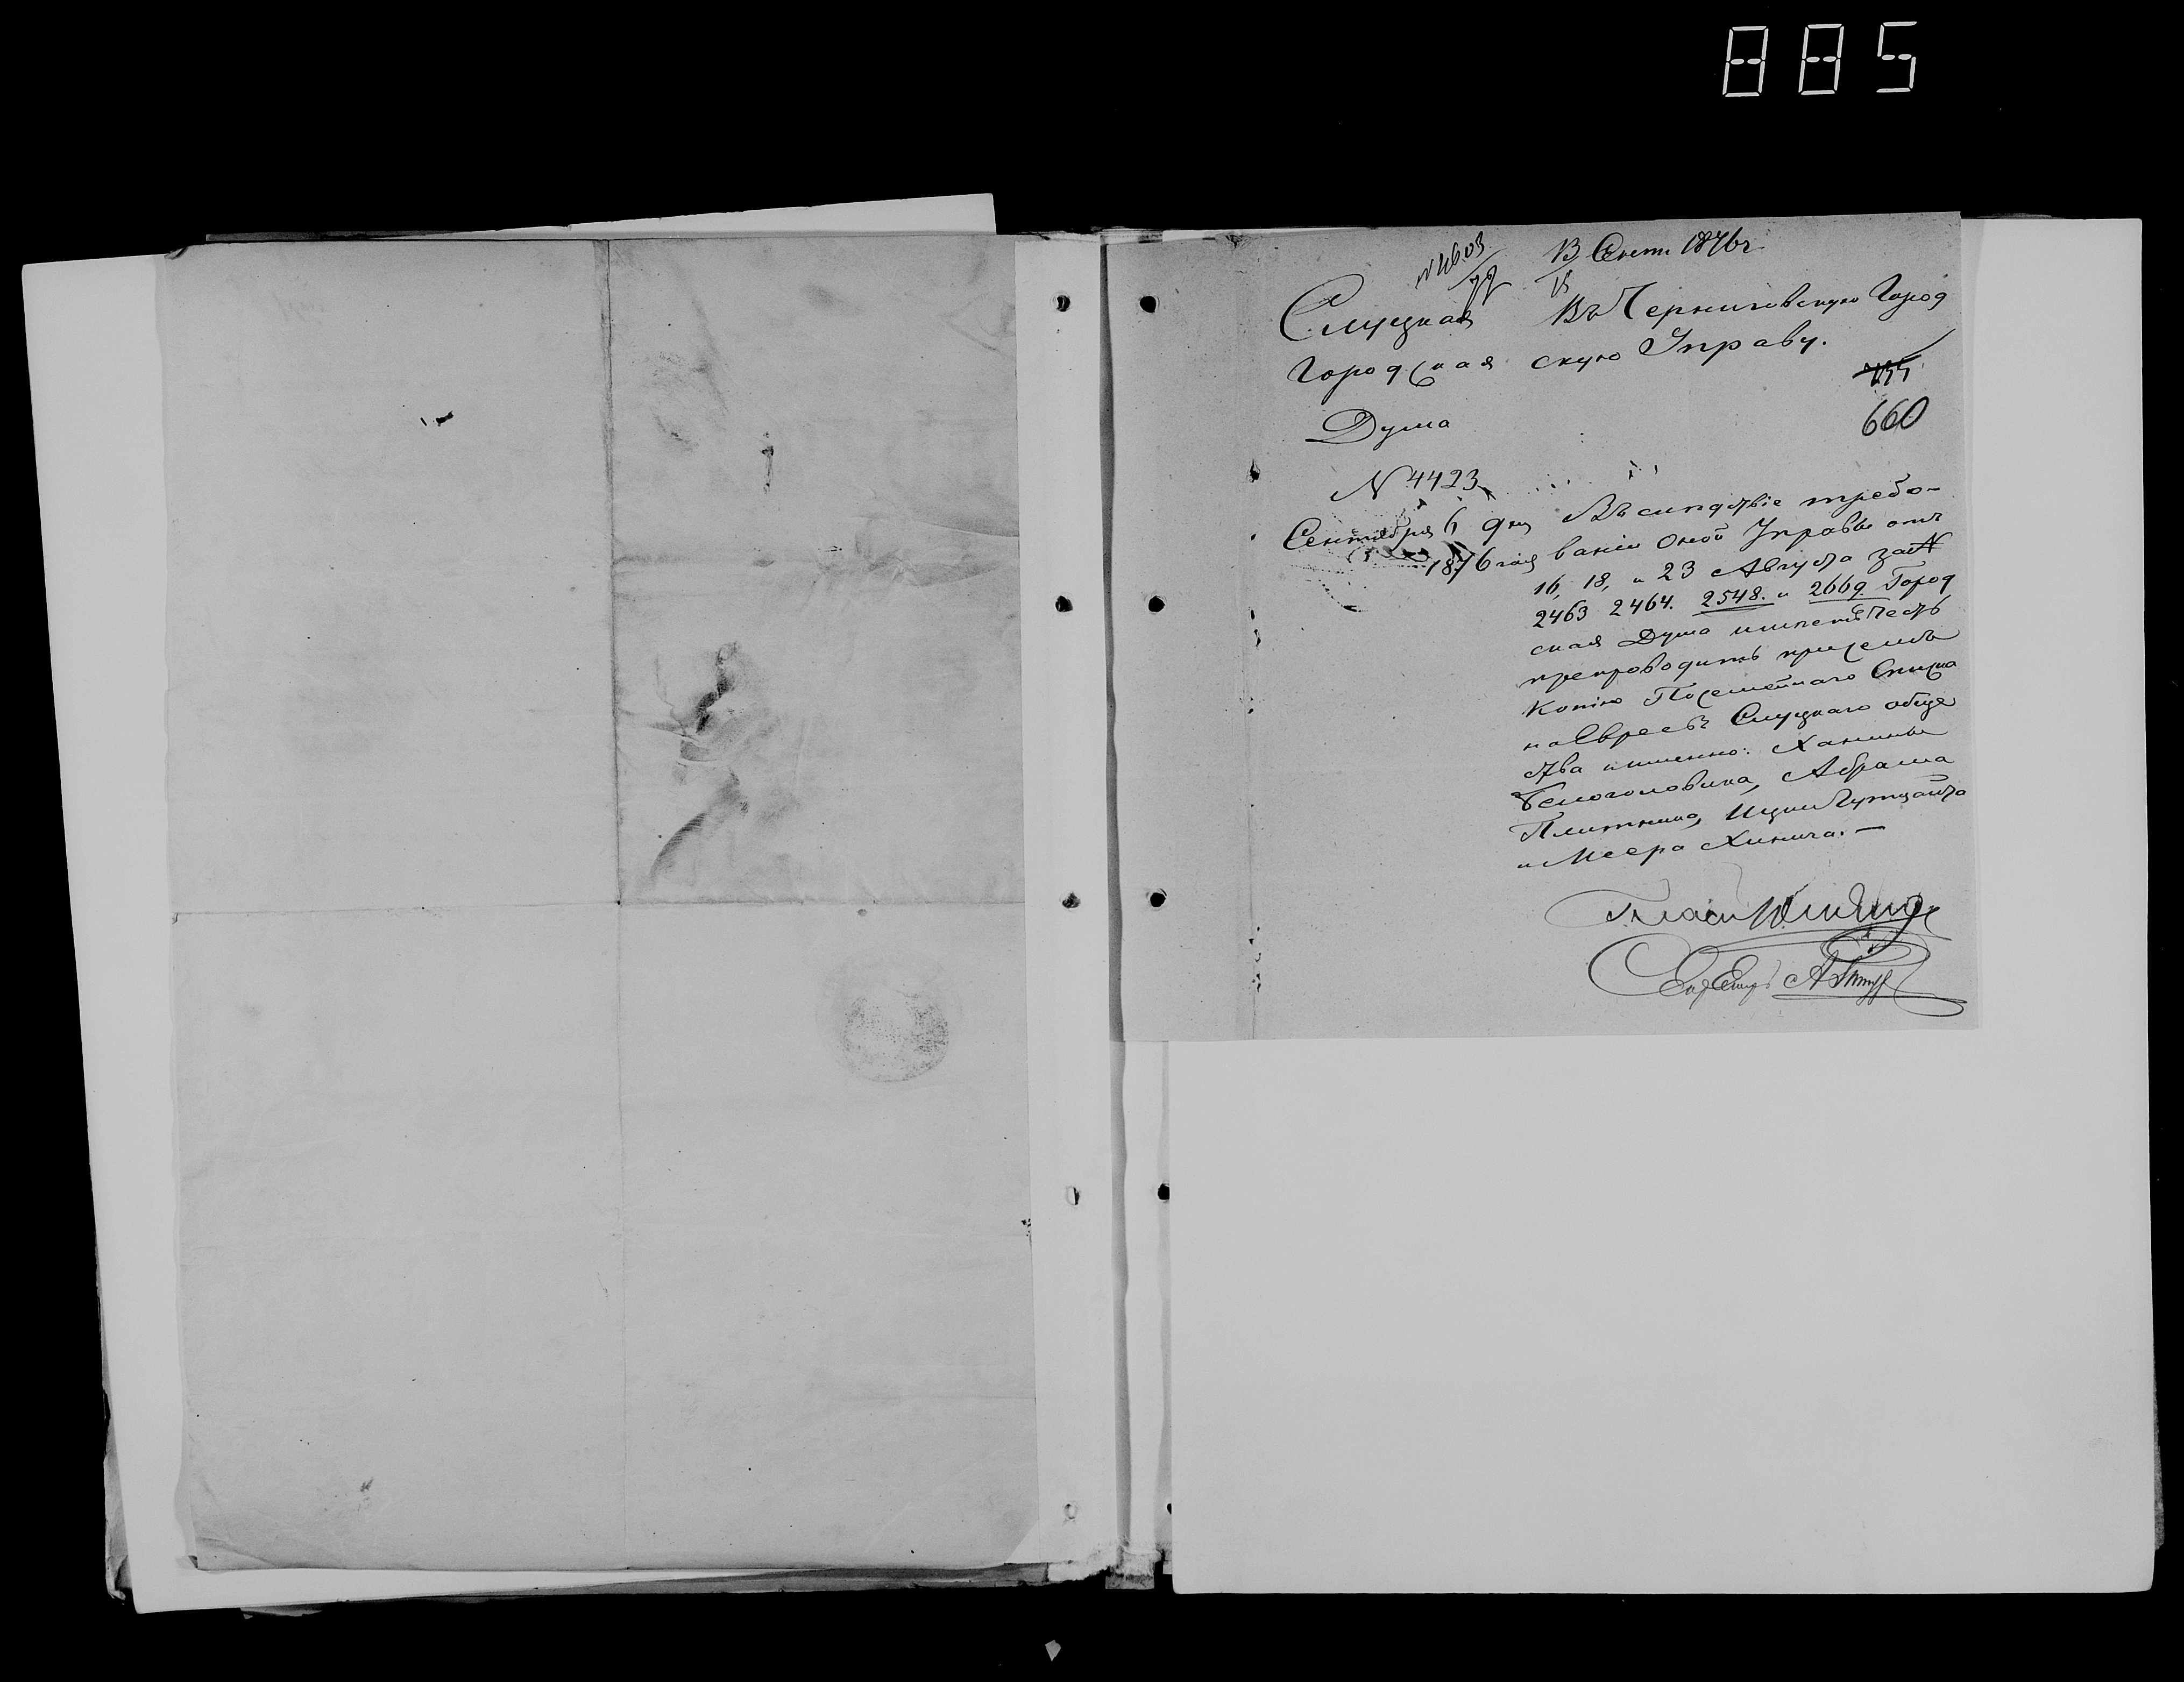 885
N 4603
13 Сент 1876 г
15
Слуцкая
Городская
Дума
N 4423
Сентября 6 дня
1876 года
Въ Черниговскую Город
скую Управу.
660
Въ слѣдствіе требо-
ваніи оной Управы отъ
16, 18, и 23 Августа за N
2463 2464. 2548. и 2669. Город
ская Дума имѣетъ честь
препроводить при семъ
Копію Посемейнаго Списка
на Евреевъ Слуцкаго обще
ства именно: Ханины
Белоголовика, Абрама
Плитника, Ицки Гутцайта
и Меера Хинича. —